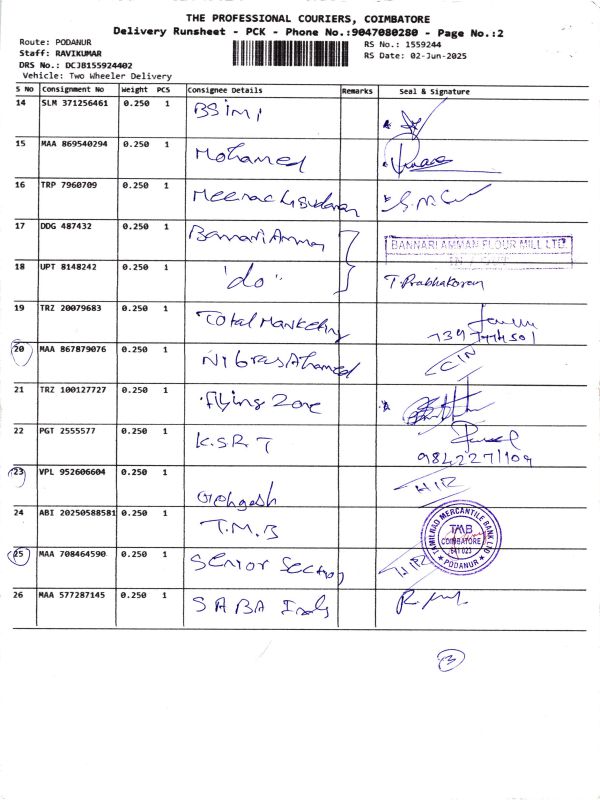 THE PROFESSIONAL COURIERS, COIMBATORE
Delivery Runsheet - PCK - Phone No.:9047080280 - Page No.:2
Route: PODANUR
Staff: RAVIKUMAR
DRS No.: DCJB155924402
Vehicle: Two Wheeler Delivery
RS No.: 1559244
RS Date: 02-Jun-2025
S No Consignment No Weight PCS Consignee Details Remarks Seal & Signature
14 SLM 371256461 0.250 1 BSIMI
15 MAA 869540294 0.250 1 Mohamed
16 TRP 7960709 0.250 1
17 DDG 487432 0.250 1 Bannari Amman BANNARI AMMAN FLOUR MILL LTD.
18 UPT 8148242 0.250 1 "do" T. Prabhakaran
19 TRZ 20079683 0.250 1 Total Marketing
20 MAA 867879076 0.250 1 Nibras Ahamed
21 TRZ 100127727 0.250 1 Flying Zone
22 PGT 2555577 0.250 1 K.S.R.T 9842271109
23 VPL 952606604 0.250 1
24 ABI 20250588581 0.250 1 T.M.B TAMILNAD MERCANTILE BANK LTD TMB COIMBATORE 641 023 PODANUR
25 MAA 708464590 0.250 1 Senior Section
26 MAA 577287145 0.250 1 SABA Inds
13